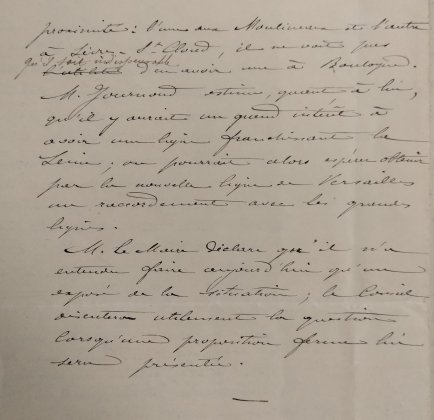 proximité : l'une aux Moulineaux et l'autre
à Sèvres - St Cloud, il ne voit pas
qu'il soit indispensable
l'utilité d'en avoir une à Boulogne.
M. Journaud estime, quant à lui,
qu'il y aurait un grand intérêt à
avoir une ligne franchissant la
Seine ; on pourrait alors espérer obtenir
par la nouvelle ligne de Versailles
un raccordement avec les grandes
lignes.
M. le Maire déclare qu'il n'a
entendu faire aujourd'hui qu'un
exposé de la situation ; le Conseil
discutera utilement la question
lorsqu'une proposition ferme lui
sera présentée.